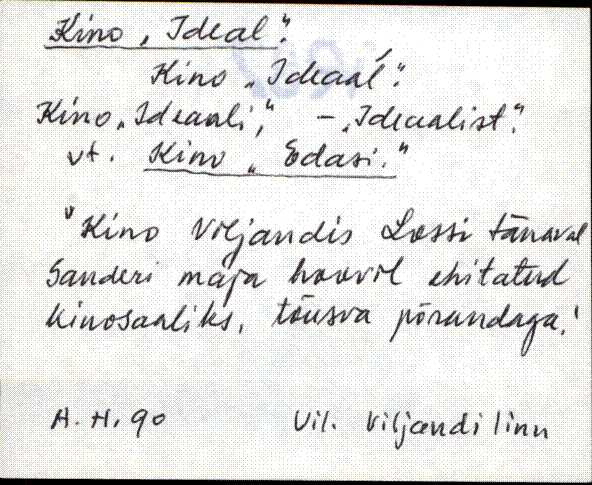 Kino „Ideal“.
Kino „Ideaal“.
Kino „Ideaali“, – „Idealist“.
vt. Kino „Edasi.“
"Kino Viljandis Lossi tänaval
Sanderi maja hoovil ehitatud
kinosaaliks, tõusva põrandaga.'
A. H. 90 Vil. Viljandi linn